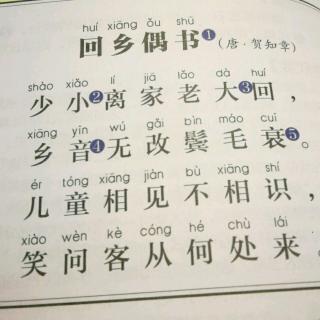 huí xiāng ǒu shū
回乡偶书❶(唐·贺知章)
shào xiǎo lí jiā lǎo dà huí
少小❷离家老大❸回，
xiāng yīn wú gǎi bìn máo cuī
乡音❹无改鬓毛衰❺。
ér tóng xiāng jiàn bù xiāng shí
儿童相见不相识，
xiào wèn kè cóng hé chù lái
笑问客从何处来。